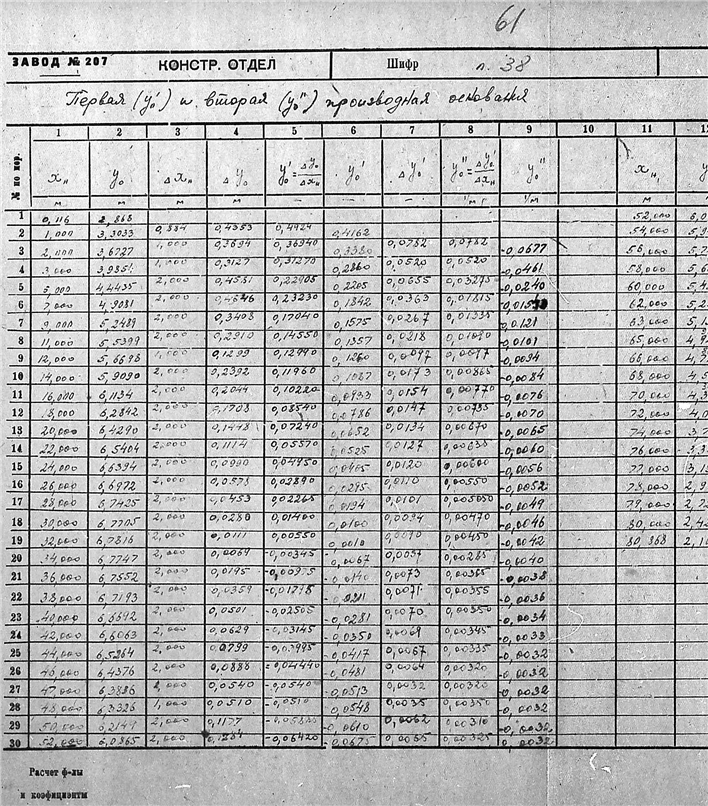 61
ЗАВОД № 207 КОНСТР. ОТДЕЛ Шифр л. 38
Первая (y₀') и вторая (y₀'') производная основания
№ по пор. 1 2 3 4 5 6 7 8 9 10 11 12
xн y₀ Δxн Δy₀ y₀'=Δy₀/Δxн y₀' Δy₀' y₀''=Δy₀'/Δxн y₀'' xн
м м м м — — — 1/м 1/м м
1 0,116 2,868 52,000
2 1,000 3,3033 0,884 0,4353 0,4924 0,4162 54,000
3 2,000 3,6727 1,000 0,3694 0,36940 0,3380 0,0782 0,0782 -0,0677 56,000
4 3,000 3,9854 1,000 0,3127 0,31270 0,2860 0,0520 0,0520 -0,0461 58,000
5 5,000 4,4435 2,000 0,4581 0,22905 0,2205 0,0655 0,03275 -0,0240 60,000
6 7,000 4,9081 2,000 0,4646 0,23230 0,1842 0,0363 0,01815 62,000
7 9,000 5,2489 2,000 0,3408 0,17040 0,1575 0,0267 0,01335 -0,0121 63,000
8 11,000 5,5399 2,000 0,2910 0,14550 0,1357 0,0218 0,01090 -0,0101 65,000
9 12,000 5,6698 1,000 0,1299 0,12990 0,1260 0,0097 0,0097 -0,0094 66,000
10 14,000 5,9090 2,000 0,2392 0,11960 0,1087 0,0173 0,00865 -0,0084 68,000
11 16,000 6,1134 2,000 0,2044 0,10220 0,0933 0,0154 0,00770 -0,0076 70,000
12 18,000 6,2842 2,000 0,1708 0,08540 0,0786 0,0147 0,00735 -0,0070 72,000
13 20,000 6,4290 2,000 0,1448 0,07240 0,0652 0,0134 0,00670 -0,0065 74,000
14 22,000 6,5404 2,000 0,1114 0,05570 0,0525 0,0127 0,00635 -0,0060 76,000
15 24,000 6,6394 2,000 0,0990 0,04950 0,0405 0,0120 0,00600 -0,0056 77,000
16 26,000 6,6972 2,000 0,0578 0,02890 0,0295 0,0110 0,00550 -0,0052 78,000
17 28,000 6,7425 2,000 0,0453 0,02265 0,0194 0,0101 0,005050 -0,0049 79,000
18 30,000 6,7705 2,000 0,0280 0,01400 0,0100 0,0094 0,00470 -0,0046 80,000
19 32,000 6,7816 2,000 0,0111 0,00550 0,0010 0,0090 0,00450 -0,0042 80,868
20 34,000 6,7747 2,000 0,0069 -0,00345 -0,0067 0,0057 0,00285 -0,0040
21 36,000 6,7552 2,000 0,0195 -0,00975 -0,0140 0,0073 0,00365 -0,0038
22 38,000 6,7193 2,000 0,0359 -0,01795 0,0071 0,00355 -0,0036
23 40,000 6,6692 2,000 0,0501 -0,02505 -0,0281 0,0070 0,00350 -0,0034
24 42,000 6,6063 2,000 0,0629 -0,03145 -0,0350 0,0069 0,00345 -0,0033
25 44,000 6,5264 2,000 0,0799 -0,03995 -0,0417 0,0067 0,00335 -0,0032
26 46,000 6,4376 2,000 0,0888 -0,04440 -0,0481 0,0064 0,00320 -0,0032
27 47,000 6,3836 0,0540 -0,0540 -0,0513 0,0032 0,00320 -0,0032
28 48,000 6,3326 1,000 0,0510 -0,0510 -0,0548 0,0035 0,00350 -0,0032
29 50,000 6,2149 2,000 0,1177 -0,05885 -0,0610 0,0062 0,00310 -0,0032
30 52,000 6,0865 2,000 0,1284 -0,06420 -0,0675 0,0065 0,00325 -0,0032
Расчет ф-лы
и коэфициенты